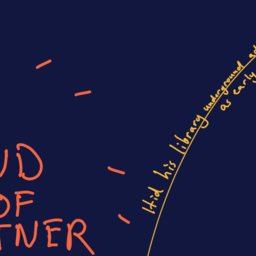 UD
OF
TNER
Hid his library underground
as early